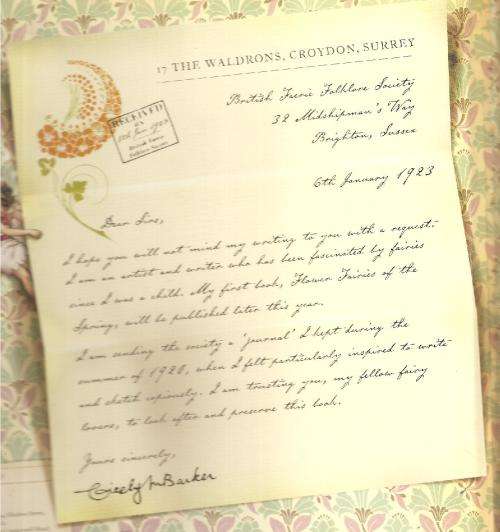 17 THE WALDRONS, CROYDON, SURREY
British Faerie Folklore Society
32 Midshipman's Way
Brighton, Sussex
RECEIVED
British Faerie
Folklore Society
6th January 1923
Dear Sirs,
I hope you will not mind my writing to you with a request.
I am an artist and writer who has been fascinated by fairies
since I was a child. My first book, Flower Fairies of the
Spring, will be published later this year.
I am sending the society a 'journal' I kept during the
summer of 1920, when I felt particularly inspired to write
and sketch copiously. I am trusting you, my fellow fairy
lovers, to look after and preserve this book.
Yours sincerely,
Cicely M Barker